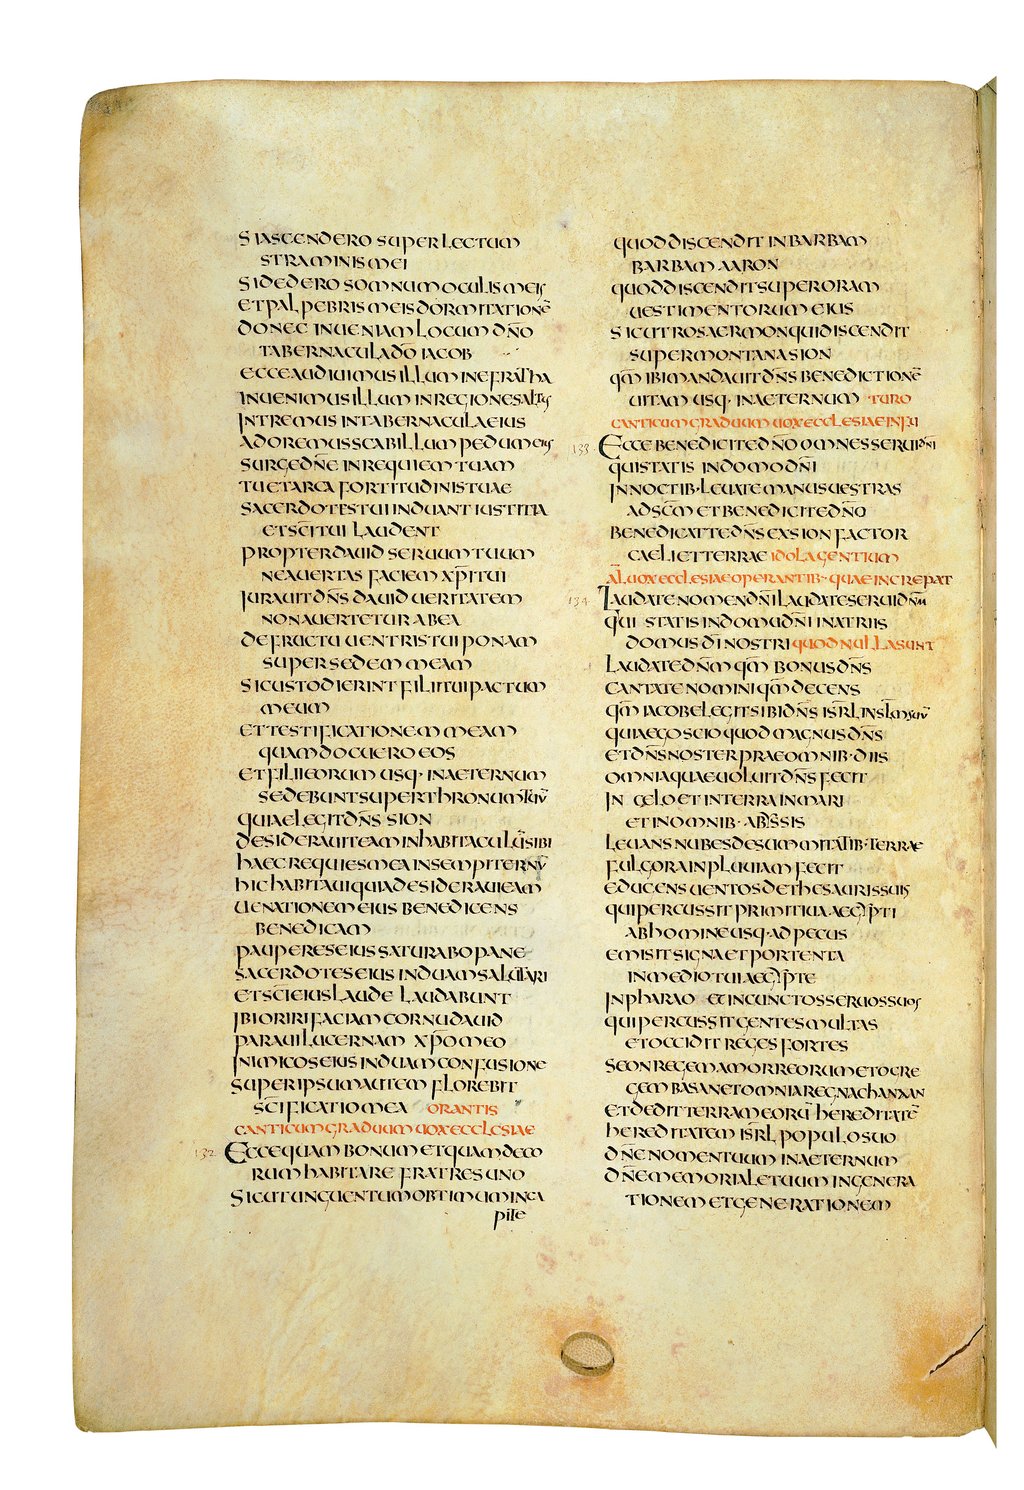 SI ASCENDERO SUPER LECTUM
STRAMINIS MEI
SI DEDERO SOMNUM OCULIS MEIS
ET PALPEBRIS MEIS DORMITATIONĒ
DONEC INUENIAM LOCUM DN̄O
TABERNACULA DŌ IACOB
ECCE AUDIUIMUS ILLUM IN EFRATHA
INUENIMUS ILLUM IN REGIONE SALTŲS
INTREMUS IN TABERNACULA EIUS
ADOREMUS SCABILLUM PEDUM EIUS
SURGE DN̄E IN REQUIEM TUAM
TU ET ARCA FORTITUDINIS TUAE
SACERDOTES TUI INDUANT IUSTITIA
ET SC̄I TUI LAUDENT
PROPTER DAUID SERUUM TUUM
NE AUERTAS FACIEM XP̄I TUI
IURAUIT DN̄S DAUID UERITATEM
NON AUERTETUR AB EA
DE FRUCTU UENTRIS TUI PONAM
SUPER SEDEM MEAM
SI CUSTODIERINT FILII TUI PACTUM
MEUM
ET TESTIFICATIONEM MEAM
QUAM DOCUERO EOS
ET FILII EORUM USQ· IN AETERNUM
SEDEBUNT SUPER THRONUM TUŪ
QUIA ELEGIT DN̄S SION
DESIDERAUIT EAM IN HABITACULŪ SIBI
HAEC REQUIES MEA IN SEMPITERNŪ
HIC HABITAUI QUIA DESIDERAUI EAM
UENATIONEM EIUS BENEDICENS
BENEDICAM
PAUPERES EIUS SATURABO PANE
SACERDOTES EIUS INDUAM SALUTARI
ET SC̄I EIUS LAUDE LAUDABUNT
IBI ORIRI FACIAM CORNU DAUID
PARAUI LUCERNAM XP̄O MEO
INIMICOS EIUS INDUAM CONFUSIONE
SUPER IPSUM AUTEM FLOREBIT
SC̄IFICATIO MEA ORANTIS
CANTICUM GRADUUM UOX ECCLESIAE
132 ECCE QUAM BONUM ET QUAM DECO
RUM HABITARE FRATRES UNO
SICUT UNGUENTUM OBTIMUM IN CA
PITE
QUOD DISCENDIT IN BARBAM
BARBAM AARON
QUOD DISCENDIT SUPER ORAM
UESTIMENTORUM EIUS
SICUT ROS AERMON QUI DISCENDIT
SUPER MONTANA SION
QM̄ IBI MANDAUIT DN̄S BENEDICTIONĒ
UITAM USQ· IN AETERNUM TURO
CANTICUM GRADUUM UOX ECCLESIAE IN FU
133 ECCE BENEDICITE DN̄O OMNES SERUI DN̄I
QUI STATIS IN DOMO DN̄I
IN NOCTIB· LEUATE MANUS UESTRAS
AD SC̄M ET BENEDICITE DN̄O
BENEDICAT TE DN̄S EX SION FACTOR
CAELI ET TERRAE IDOLA GENTIUM
AL̄ UOX ECCLESIAE OPERANTIB· QUAE INCREPAT
134 LAUDATE NOMEN DN̄I LAUDATE SERUI DN̄M
QUI STATIS IN DOMU DN̄I IN ATRIIS
DOMUS DĪ NOSTRI QUOD NULLA SUNT
LAUDATE DN̄M QM̄ BONUS DN̄S
CANTATE NOMINI QM̄ DECENS
QM̄ IACOB ELEGIT SIBI DN̄S ISR̄L
QUIA EGO SCIO QUOD MAGNUS DN̄S
ET DN̄S NOSTER PRAE OMNIB· DIIS
OMNIA QUAE UOLUIT DN̄S FECIT
IN CELO ET IN TERRA IN MARI
ET IN OMNIB· ABISSIS
LEUANS NUBES DE SUMMITATIB· TERRAE
FULGORA IN PLUUIAM FECIT
EDUCENS UENTOS DE THESAURIS SUIS
QUI PERCUSSIT PRIMITIUA AEGYPTI
AB HOMINE USQ· AD PECUS
EMISIT SIGNA ET PORTENTA
IN MEDIO TUI AEGYPTE
IN PHARAO ET IN CUNCTOS SERUOS SUOS
QUI PERCUSSIT GENTES MULTAS
ET OCCIDIT REGES FORTES
SEON REGEM AMORREORUM ET OG RE
GEM BASAN ET OMNIA REGNA CHANXAN
ET DEDIT TERRAM EORŪ HEREDITATĒ
HEREDITATEM ISR̄L POPULO SUO
DN̄E NOMEN TUUM IN AETERNUM
DN̄E MEMORIALE TUUM IN GENERA
TIONEM ET GENERATIONEM